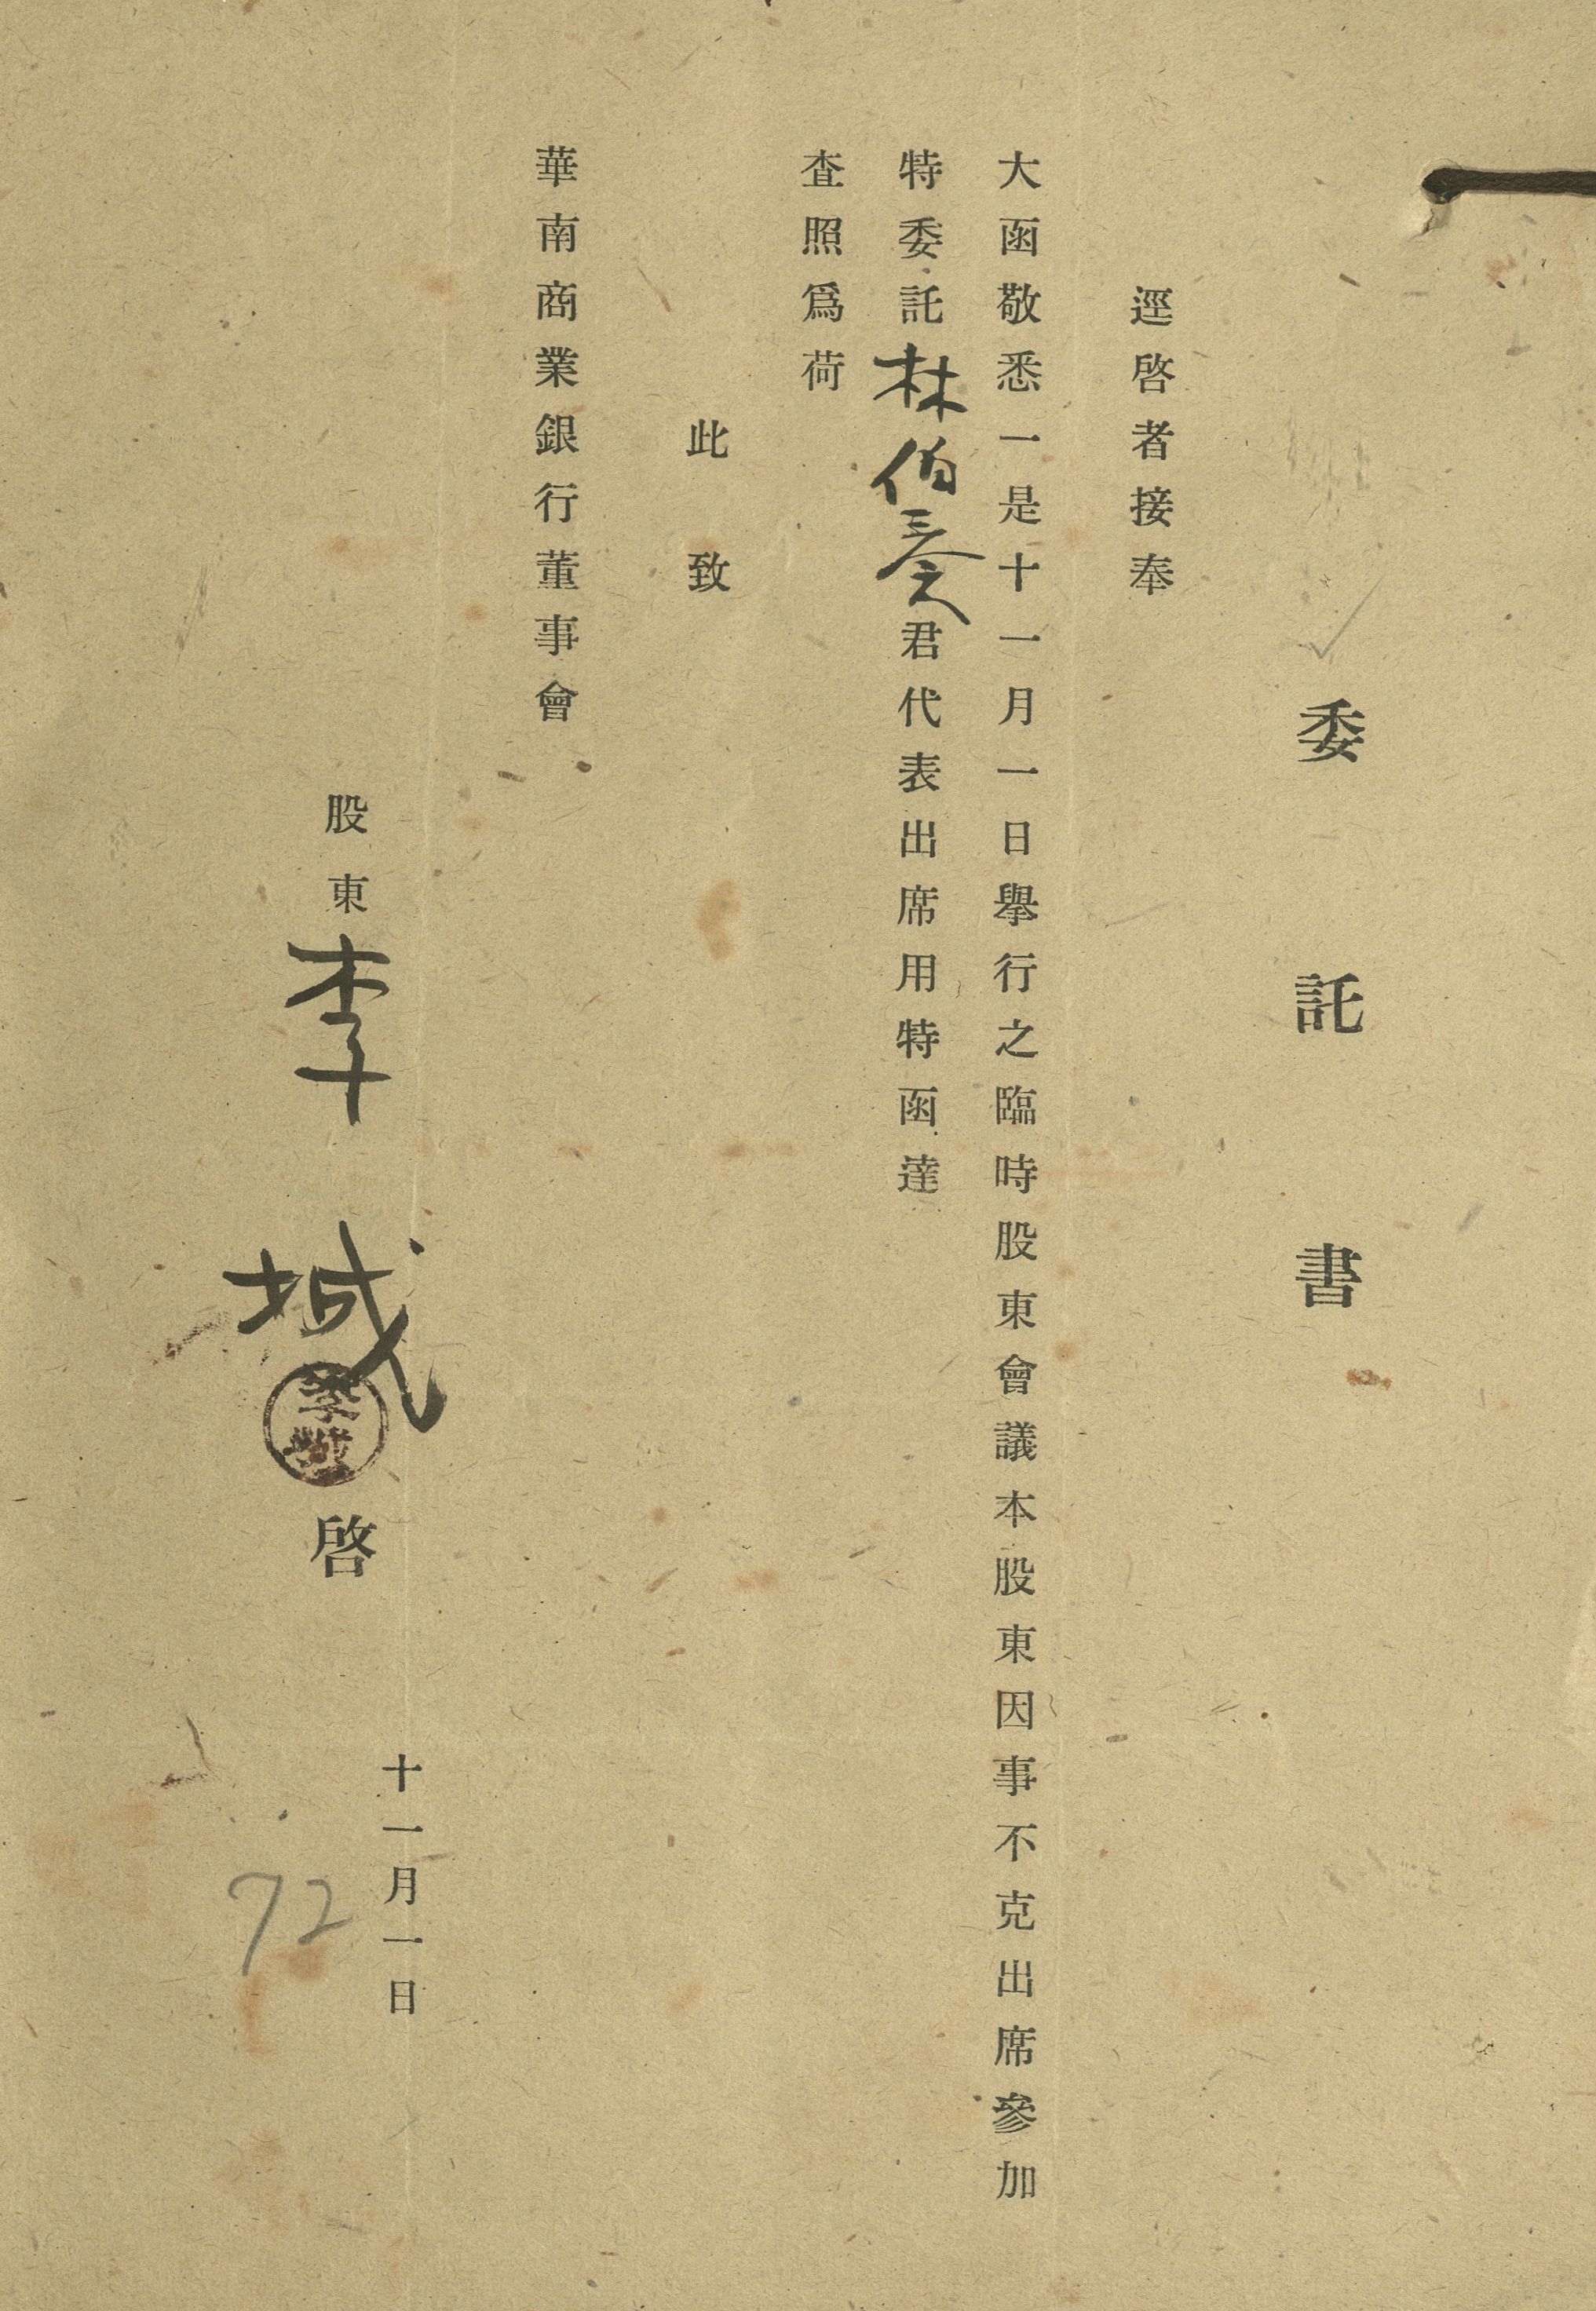 委託書
逕啓者接奉
大函敬悉一是十一月一日舉行之臨時股東會議本股東因事不克出席參加
特委託林伯奏君代表出席用特函達
查照爲荷
此致
華南商業銀行董事會
股東李城啓
李城
十一月一日
72